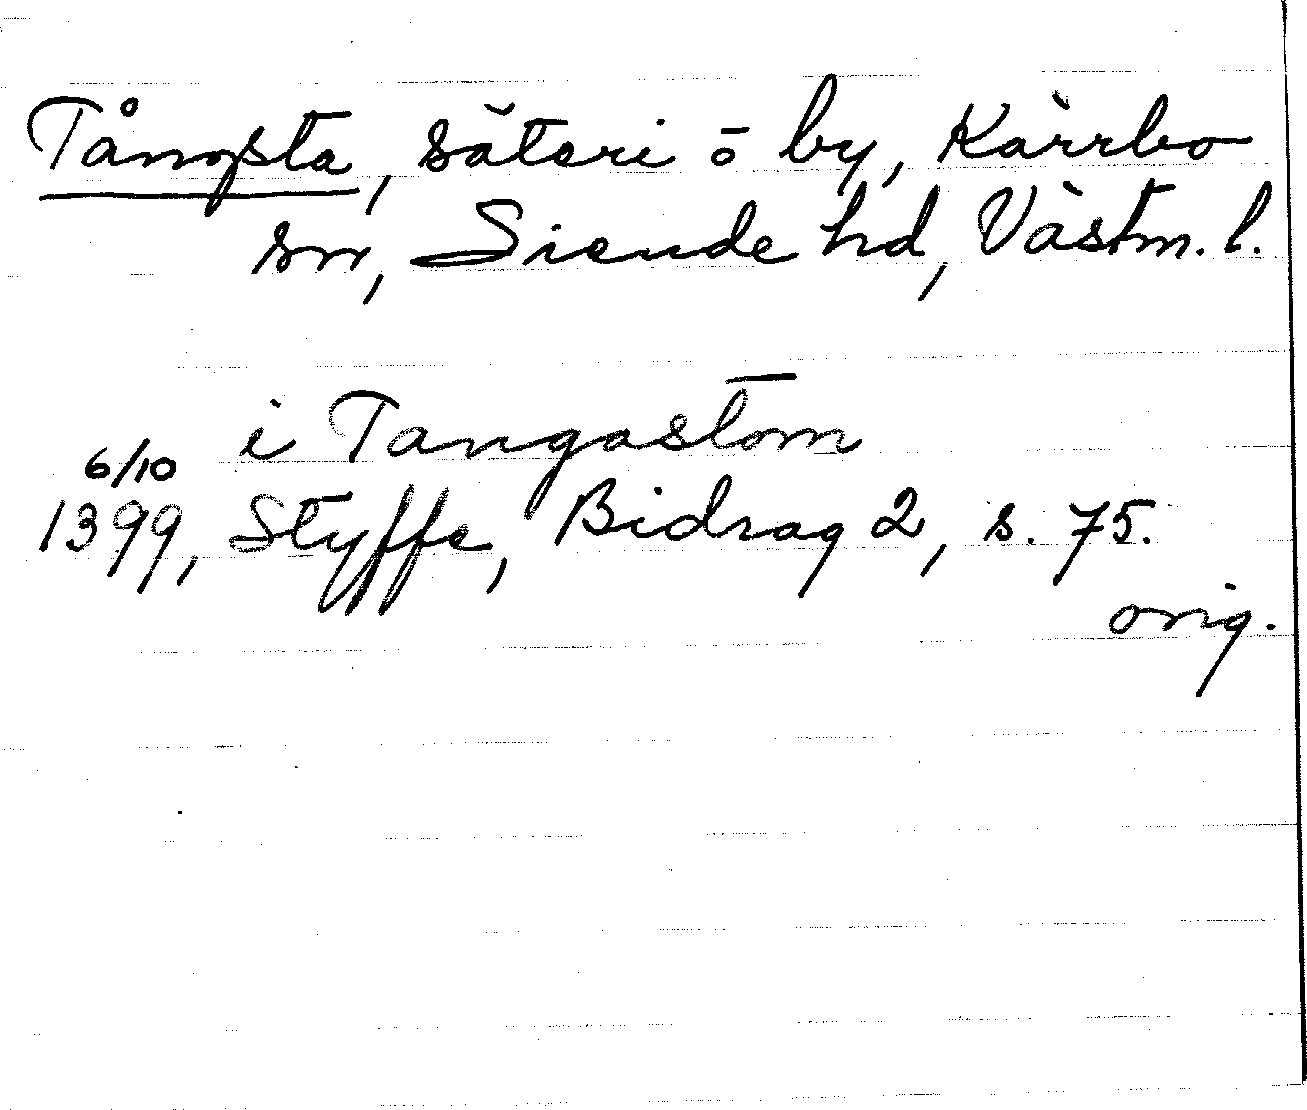 Tångsta, säteri o by, Kärrbo
sn, Siende hd, Västm. l.
i Tangastom
6/10
1399, Styffe, Bidrag 2, s. 75.
orig.